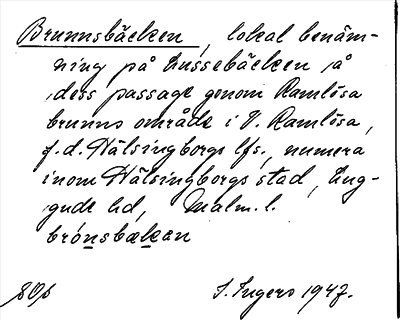 Brunnsbäcken, lokal benäm-
ning på Lussebäcken å
dess passage genom Ramlösa
brunns område i V. Ramlösa,
f.d. Hälsingborgs lfs., numera
inom Hälsingborgs stad, Lug-
gude hd, Malm. l.
brónsbækan
I. Ingers 1947.